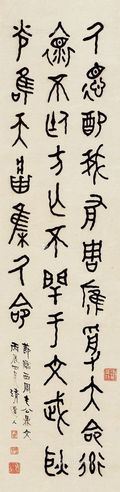 厥德配我有周膺受大命率
懷不廷方亡不閈于文武耿
光唯天將集厥命
節臨西周毛公鼎文
清道人